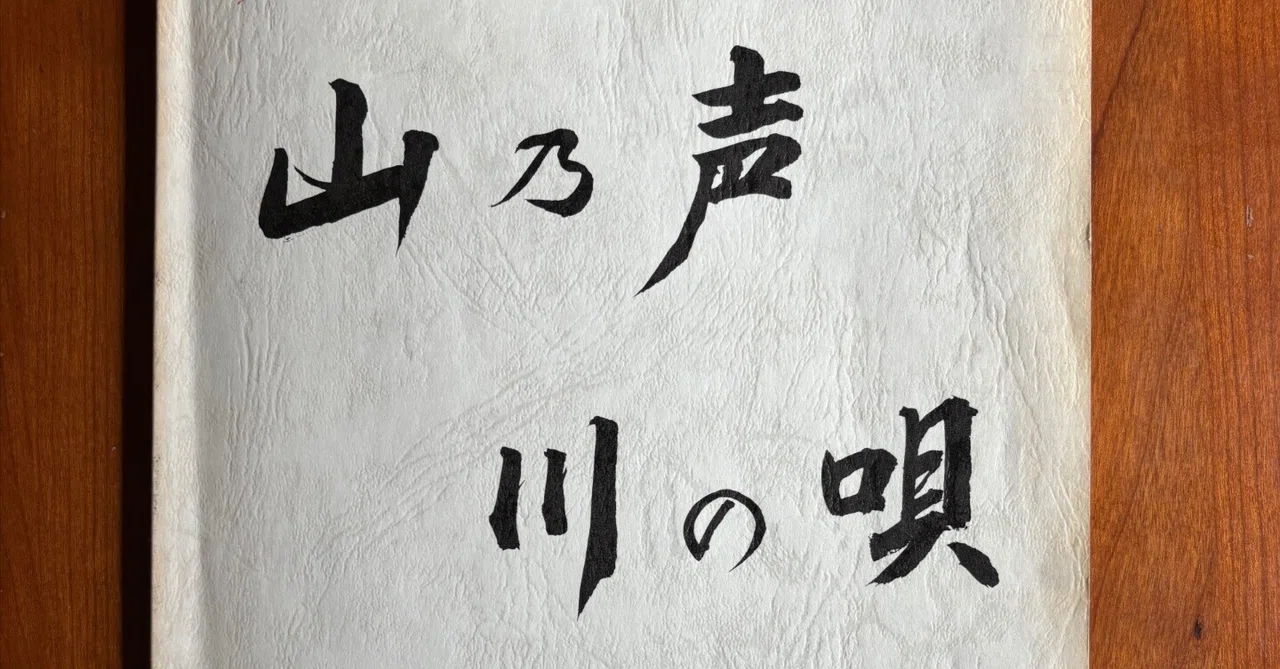 山乃声
川の唄